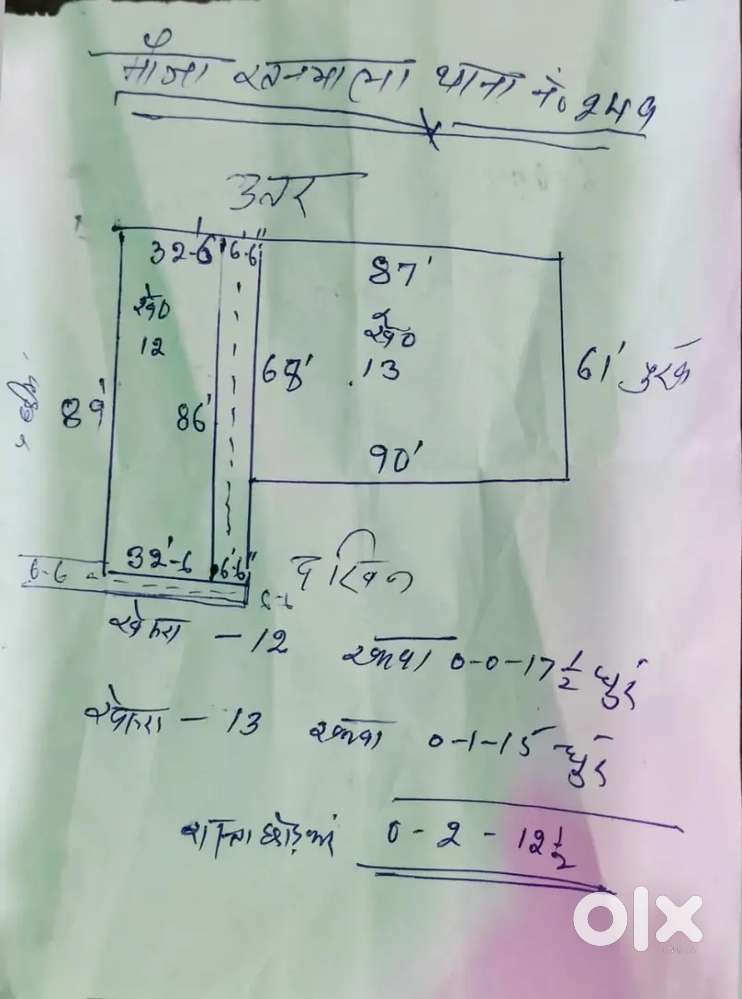 मौजा रतनमाला थाना नं० 249
उत्तर
32-6 6'-6"
87'
खे०
12
खे०
13
89'
86'
68'
61'
90'
32'-6 6'-6"
6-6
दक्खिन
8-6
खेसरा - 12 रकवा 0-0-17 1/2 धुर
खेसरा - 13 रकवा 0-1-15 धुर
रास्ता छोड़कर 0 - 2 - 12 1/2
olx